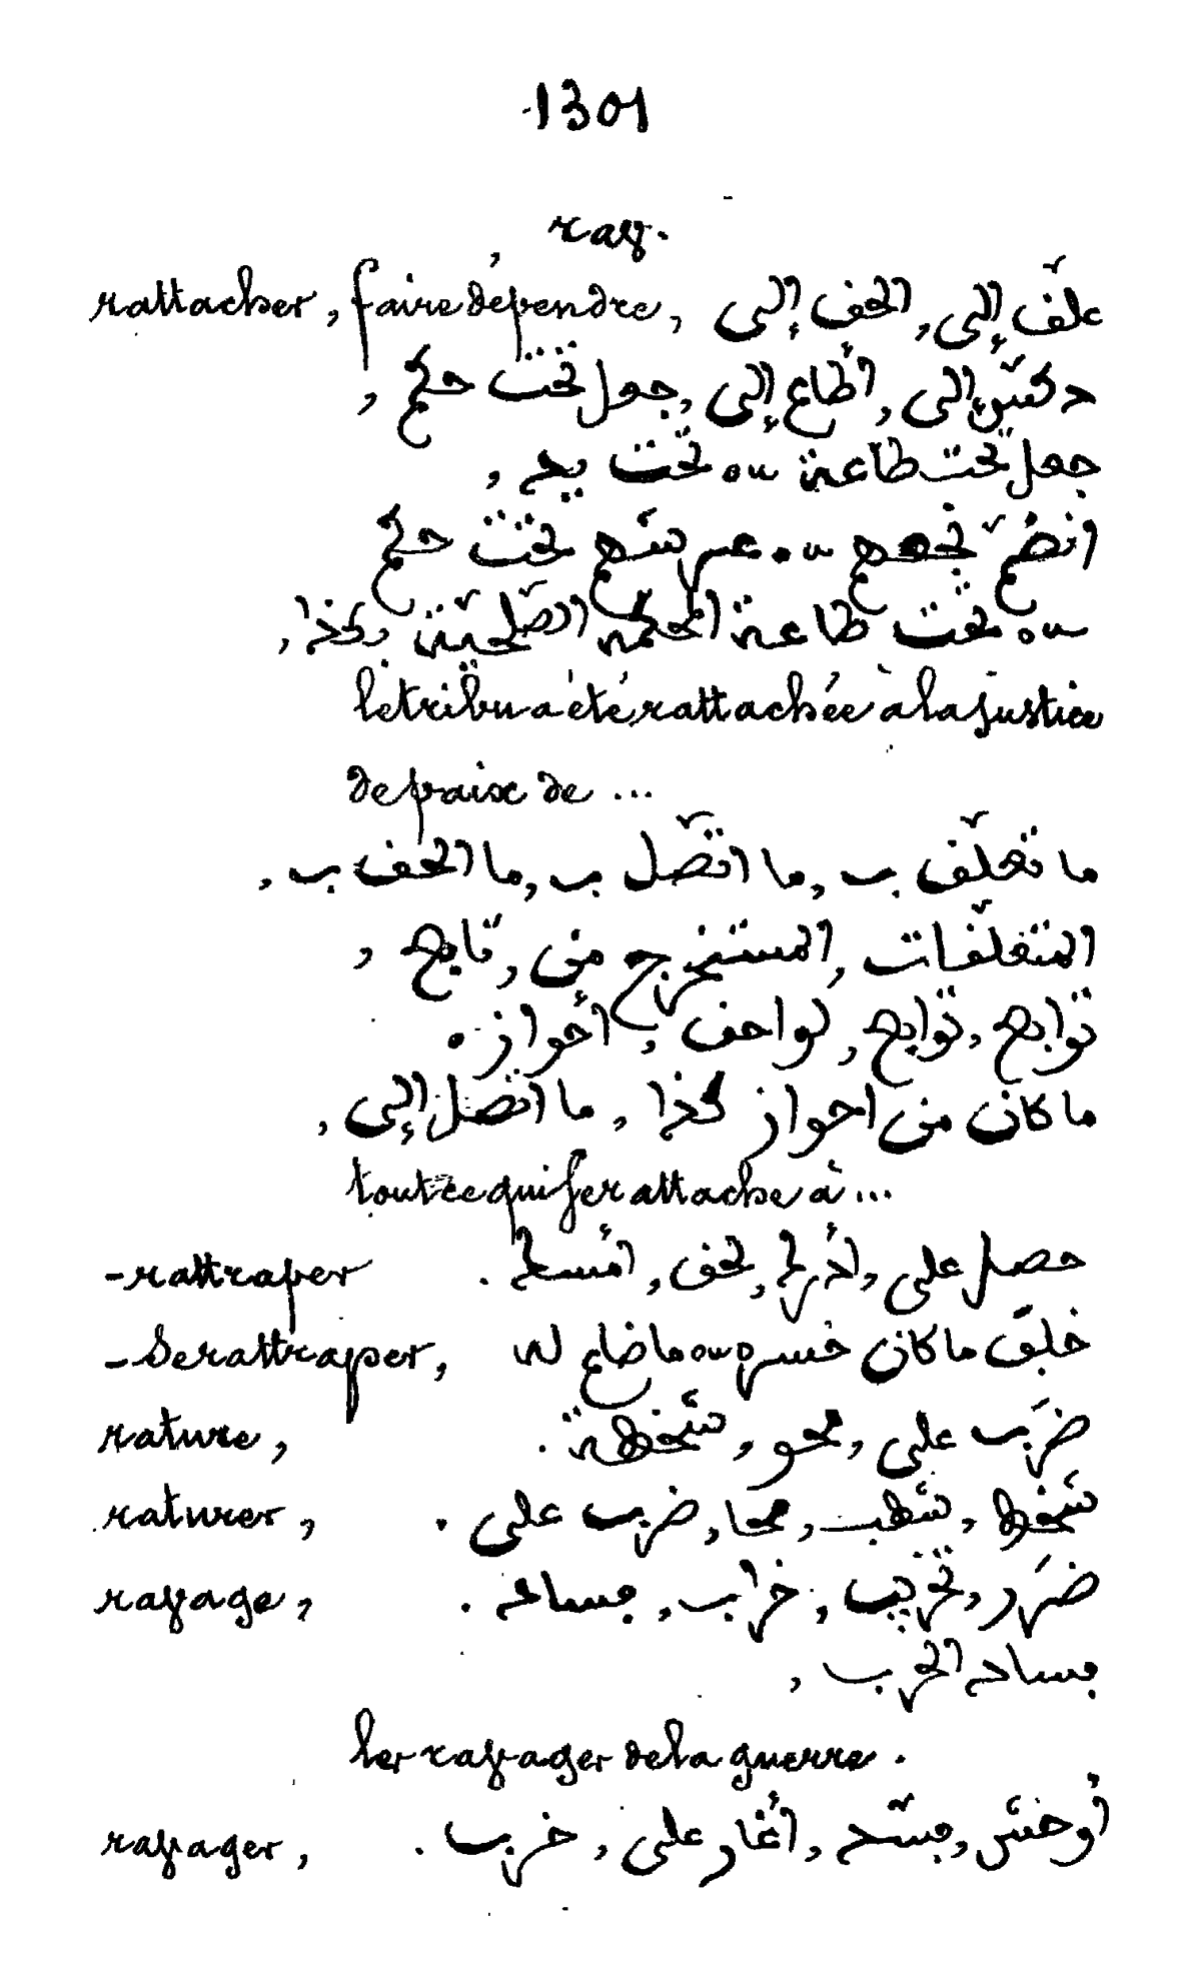 1301
rav.
rattacher, faire dépendre, علّف إلى, الحف إلى
دكّس إلى, أطاع إلى, جعل تحت حكم,
جعل تحت طاعة ou تحت يد,
انضمّ نجع ou عرش تحت حكم
ou تحت طاعة المحكمة الصّلحيّة بكذا,
le tribu a été rattachée à la justice
de paix de ...
ما تعلّف ب, ما اتّصل ب, ما الحف ب,
المتعلّفات, المستخرج من, تابع,
توابع, توابع, لواحف, أحواز.
ما كان من احواز كذا, ما اتصل إلى,
tout ce qui se rattache à ...
- rattraper حصل على, أدرك, لحف, امسك.
- Se rattraper, خلّف ما كان خسره ou ما ضاع له
rature, ضرَب على, محو, شخطة.
raturer, شخط, شطب, محا, ضرب على.
ravage, ضرَر, تخريب, خراب, بساد.
بساد الحرب,
les ravages de la guerre.
ravager, أوحش, بسّد, أغار على, خرب.